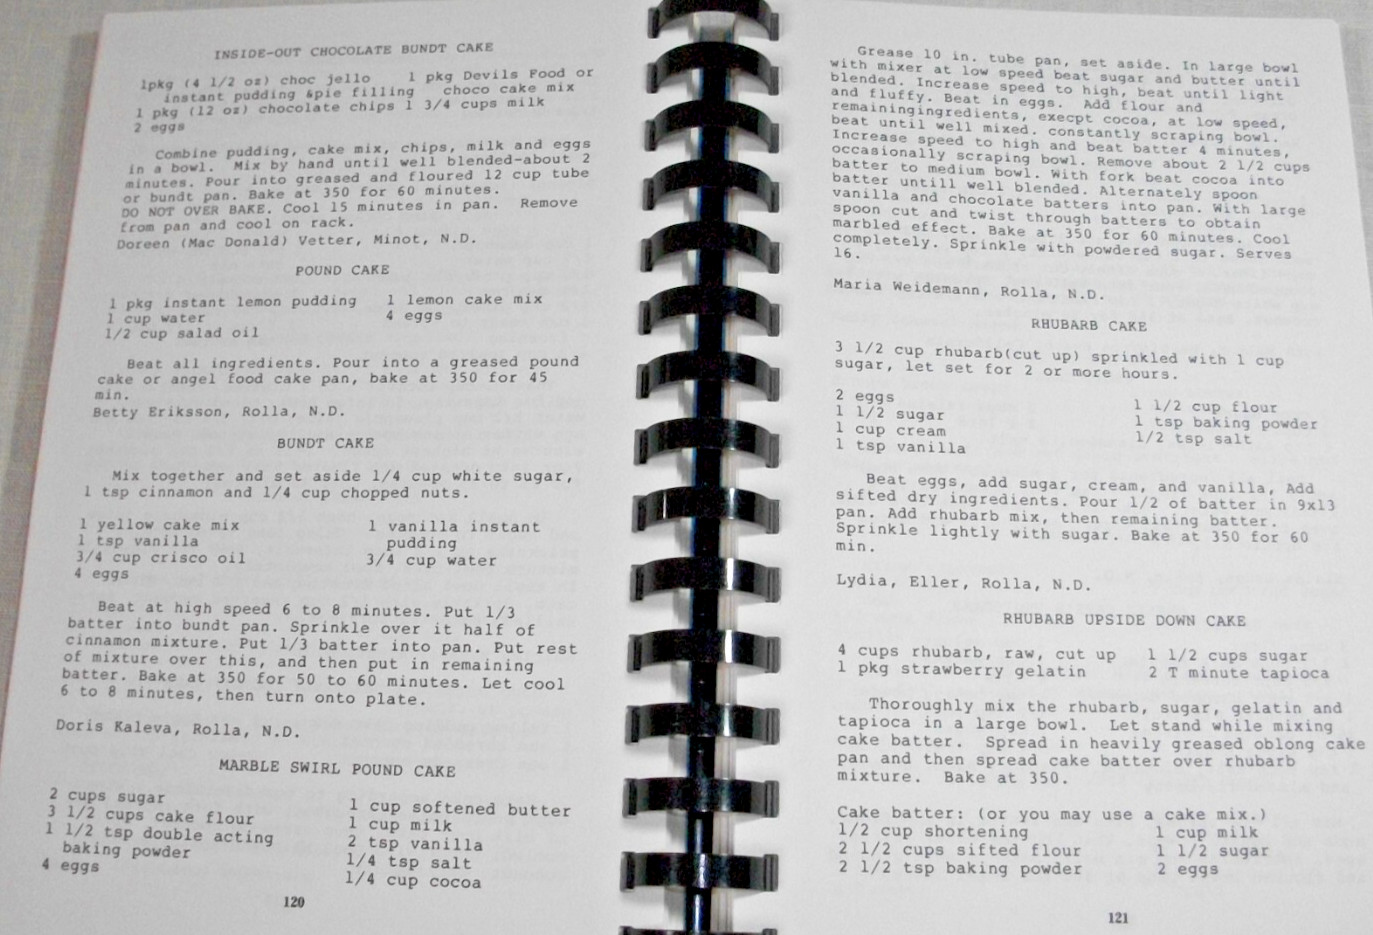 INSIDE-OUT CHOCOLATE BUNDT CAKE
1pkg (4 1/2 oz) choc jello 1 pkg Devils Food or
instant pudding &pie filling choco cake mix
1 pkg (12 oz) chocolate chips 1 3/4 cups milk
2 eggs
Combine pudding, cake mix, chips, milk and eggs
in a bowl. Mix by hand until well blended-about 2
minutes. Pour into greased and floured 12 cup tube
or bundt pan. Bake at 350 for 60 minutes.
DO NOT OVER BAKE. Cool 15 minutes in pan. Remove
from pan and cool on rack.
Doreen (Mac Donald) Vetter, Minot, N.D.
POUND CAKE
1 pkg instant lemon pudding 1 lemon cake mix
1 cup water 4 eggs
1/2 cup salad oil
Beat all ingredients. Pour into a greased pound
cake or angel food cake pan, bake at 350 for 45
min.
Betty Eriksson, Rolla, N.D.
BUNDT CAKE
Mix together and set aside 1/4 cup white sugar,
1 tsp cinnamon and 1/4 cup chopped nuts.
1 yellow cake mix 1 vanilla instant
1 tsp vanilla pudding
3/4 cup crisco oil 3/4 cup water
4 eggs
Beat at high speed 6 to 8 minutes. Put 1/3
batter into bundt pan. Sprinkle over it half of
cinnamon mixture. Put 1/3 batter into pan. Put rest
of mixture over this, and then put in remaining
batter. Bake at 350 for 50 to 60 minutes. Let cool
6 to 8 minutes, then turn onto plate.
Doris Kaleva, Rolla, N.D.
MARBLE SWIRL POUND CAKE
2 cups sugar 1 cup softened butter
3 1/2 cups cake flour 1 cup milk
1 1/2 tsp double acting 2 tsp vanilla
baking powder 1/4 tsp salt
4 eggs 1/4 cup cocoa
120
Grease 10 in. tube pan, set aside. In large bowl
with mixer at low speed beat sugar and butter until
blended. Increase speed to high, beat until light
and fluffy. Beat in eggs. Add flour and
remainingingredients, execpt cocoa, at low speed,
beat until well mixed. constantly scraping bowl.
Increase speed to high and beat batter 4 minutes,
occasionally scraping bowl. Remove about 2 1/2 cups
batter to medium bowl. With fork beat cocoa into
batter untill well blended. Alternately spoon
vanilla and chocolate batters into pan. With large
spoon cut and twist through batters to obtain
marbled effect. Bake at 350 for 60 minutes. Cool
completely. Sprinkle with powdered sugar. Serves
16.
Maria Weidemann, Rolla, N.D.
RHUBARB CAKE
3 1/2 cup rhubarb(cut up) sprinkled with 1 cup
sugar, let set for 2 or more hours.
2 eggs 1 1/2 cup flour
1 1/2 sugar 1 tsp baking powder
1 cup cream 1/2 tsp salt
1 tsp vanilla
Beat eggs, add sugar, cream, and vanilla, Add
sifted dry ingredients. Pour 1/2 of batter in 9x13
pan. Add rhubarb mix, then remaining batter.
Sprinkle lightly with sugar. Bake at 350 for 60
min.
Lydia, Eller, Rolla, N.D.
RHUBARB UPSIDE DOWN CAKE
4 cups rhubarb, raw, cut up 1 1/2 cups sugar
1 pkg strawberry gelatin 2 T minute tapioca
Thoroughly mix the rhubarb, sugar, gelatin and
tapioca in a large bowl. Let stand while mixing
cake batter. Spread in heavily greased oblong cake
pan and then spread cake batter over rhubarb
mixture. Bake at 350.
Cake batter: (or you may use a cake mix.)
1/2 cup shortening 1 cup milk
2 1/2 cups sifted flour 1 1/2 sugar
2 1/2 tsp baking powder 2 eggs
121